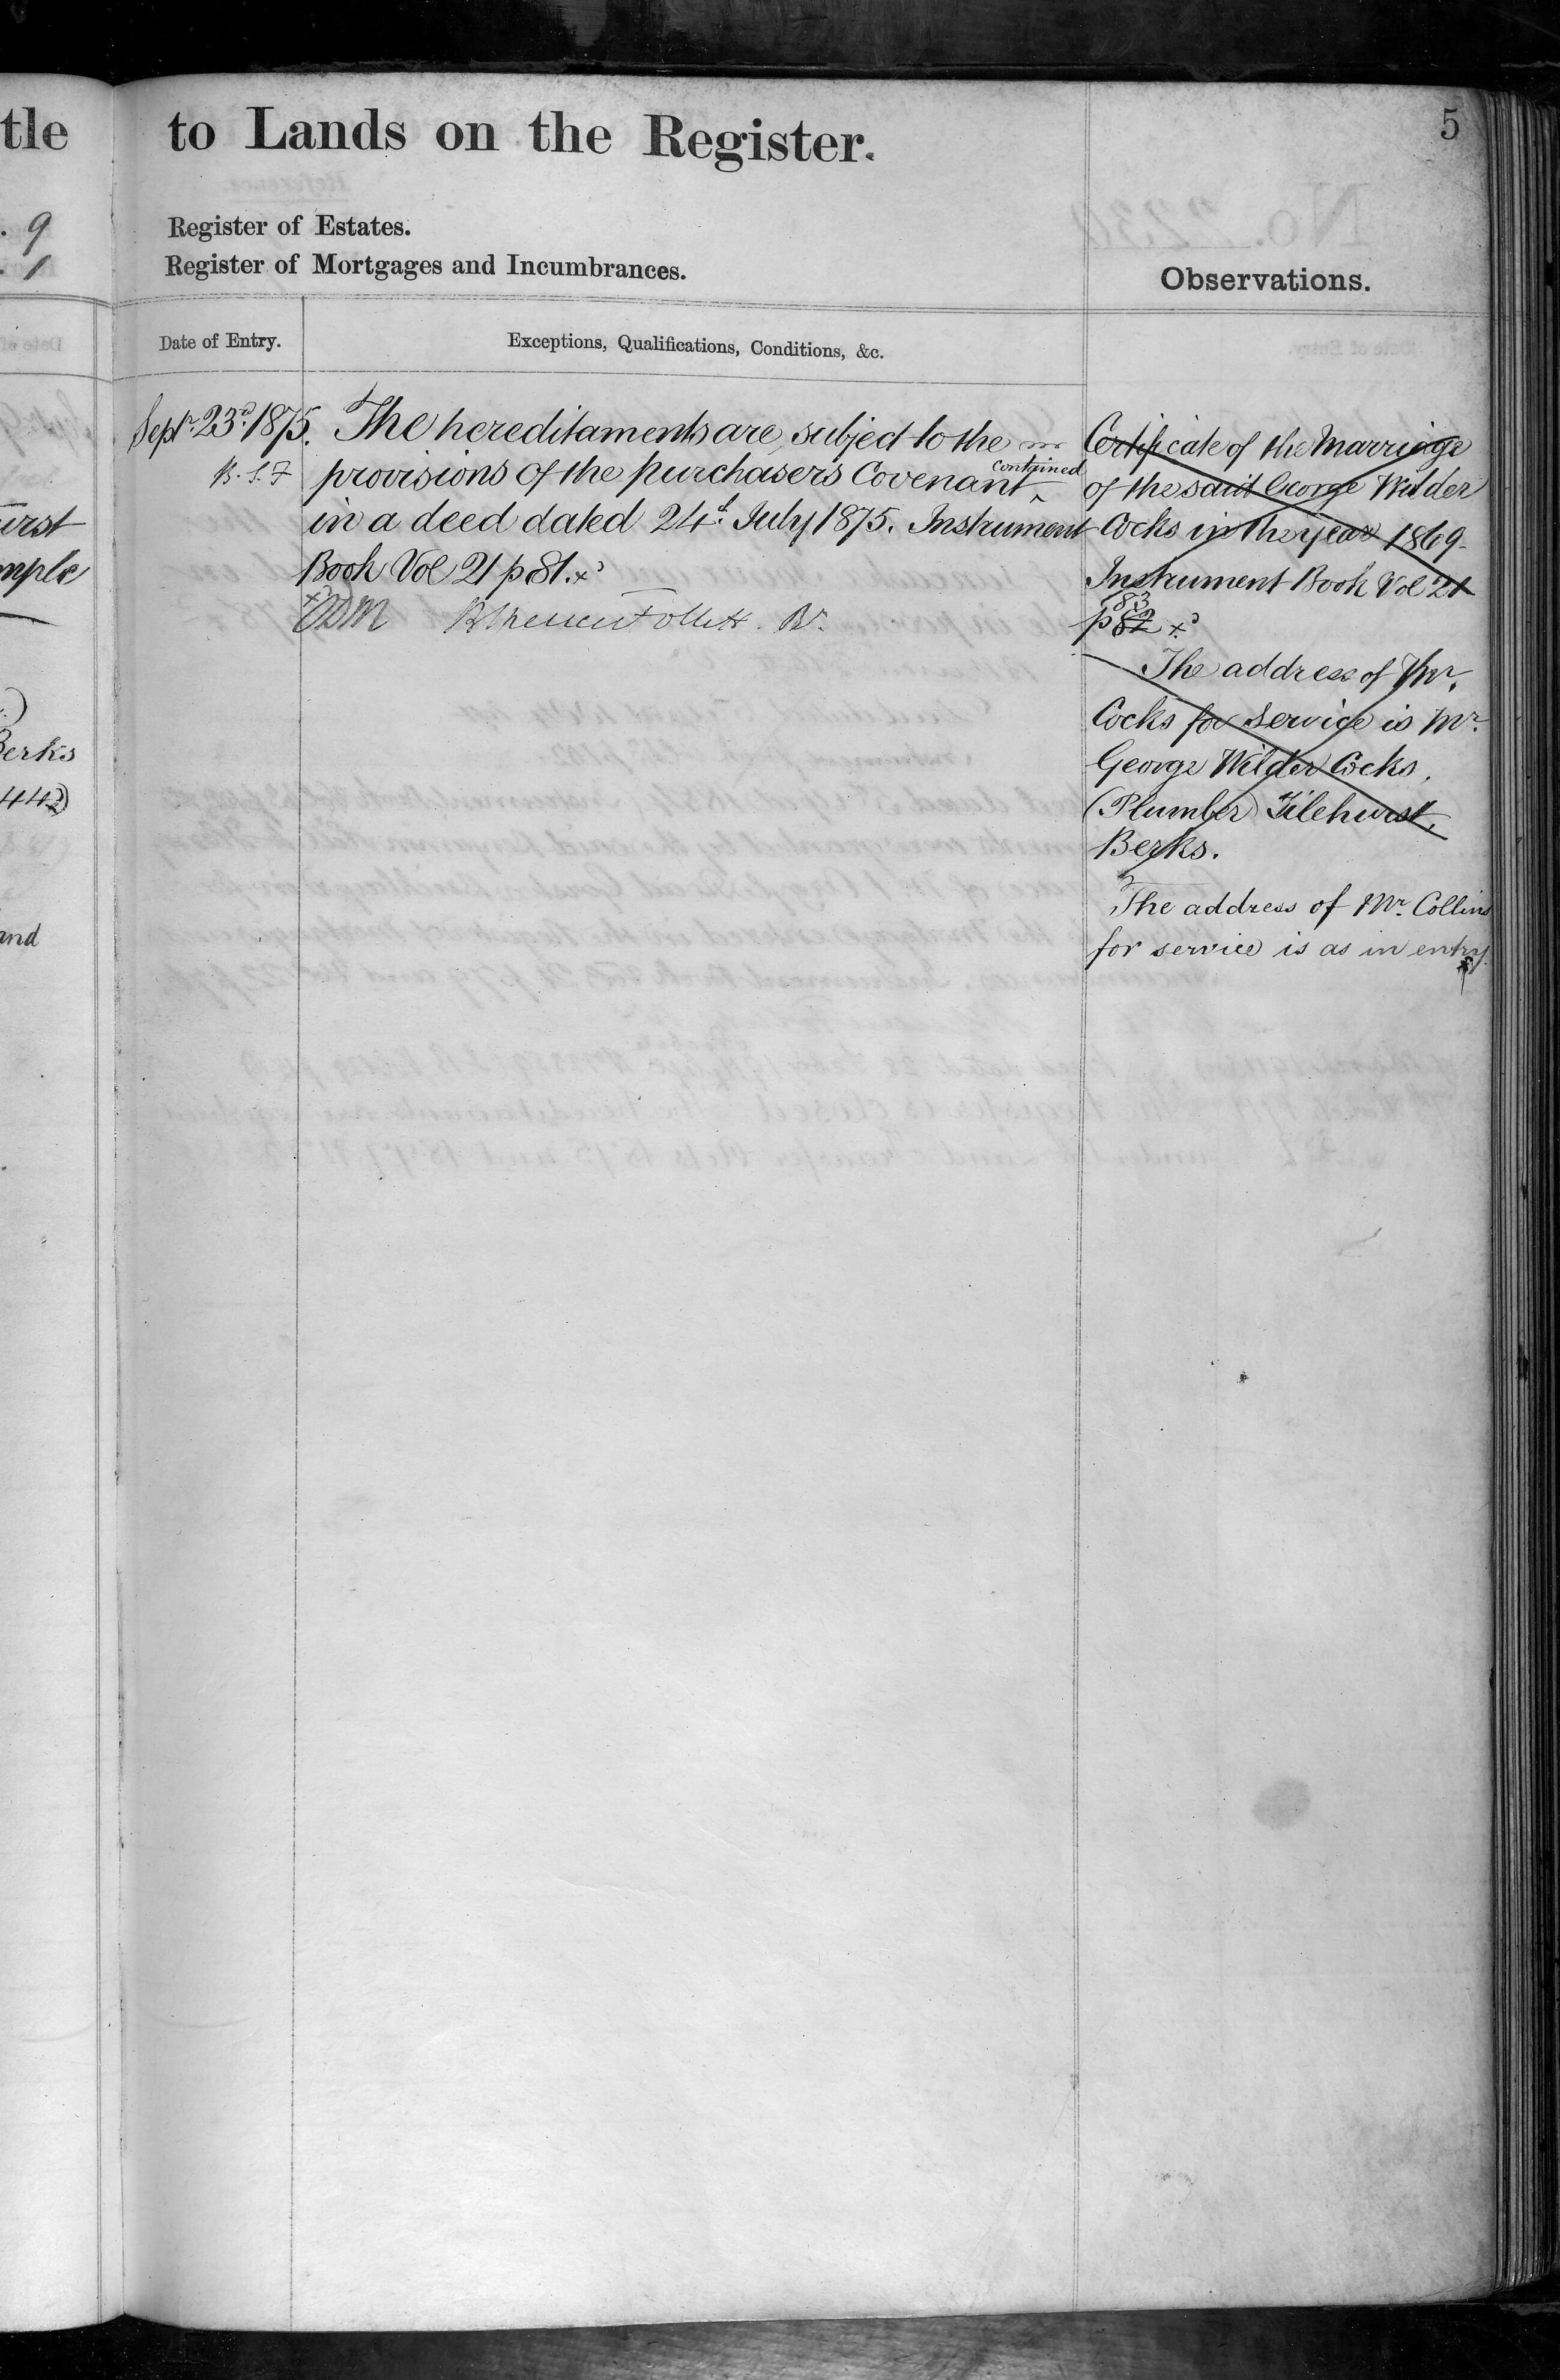 tle
. 9
. 1
erks
442)
and
to Lands on the Register.
5
Register of Estates.
Register of Mortgages and Incumbrances.
Observations.
Date of Entry.
Exceptions, Qualifications, Conditions, &c.
Septr. 23d. 1875.
B. S. F
The hereditaments are subject to the
provisions of the purchasers Covenant contained
in a deed dated 24th July 1875. Instrument
Book Vol 21 p 81. x
Certificate of the Marriage
of the said George Wilder
Cocks in the year 1869
Instrument Book Vol 21
p 82 83 x
The address of Mr.
Cocks for service is Mr.
George Wilder Cocks,
(Plumber) Tilehurst,
Berks.
The address of Mr. Collins
for service is as in entry.